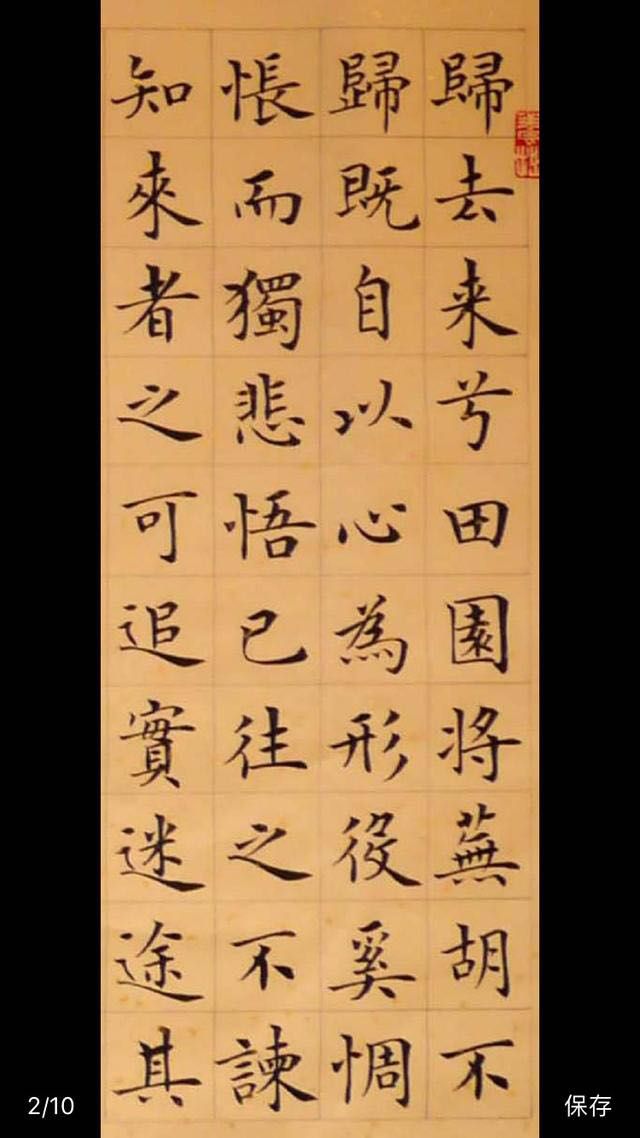 歸去来兮田園将蕪胡不
歸既自以心為形役奚惆
悵而獨悲悟已往之不諫
知來者之可追實迷途其
2/10
保存